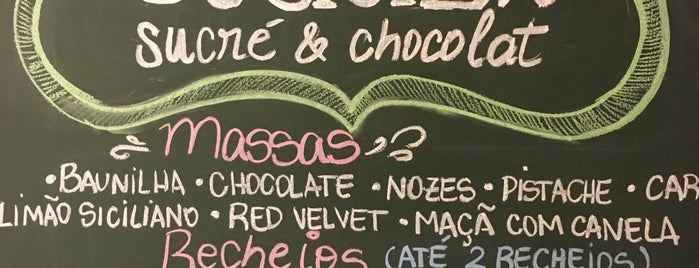 sucré & chocolat
Massas
• BAUNILHA • CHOCOLATE • NOZES • PISTACHE •
LIMÃO SICILIANO • RED VELVET • MAÇÃ COM CANELA
Recheios (ATÉ 2 RECHEIOS)